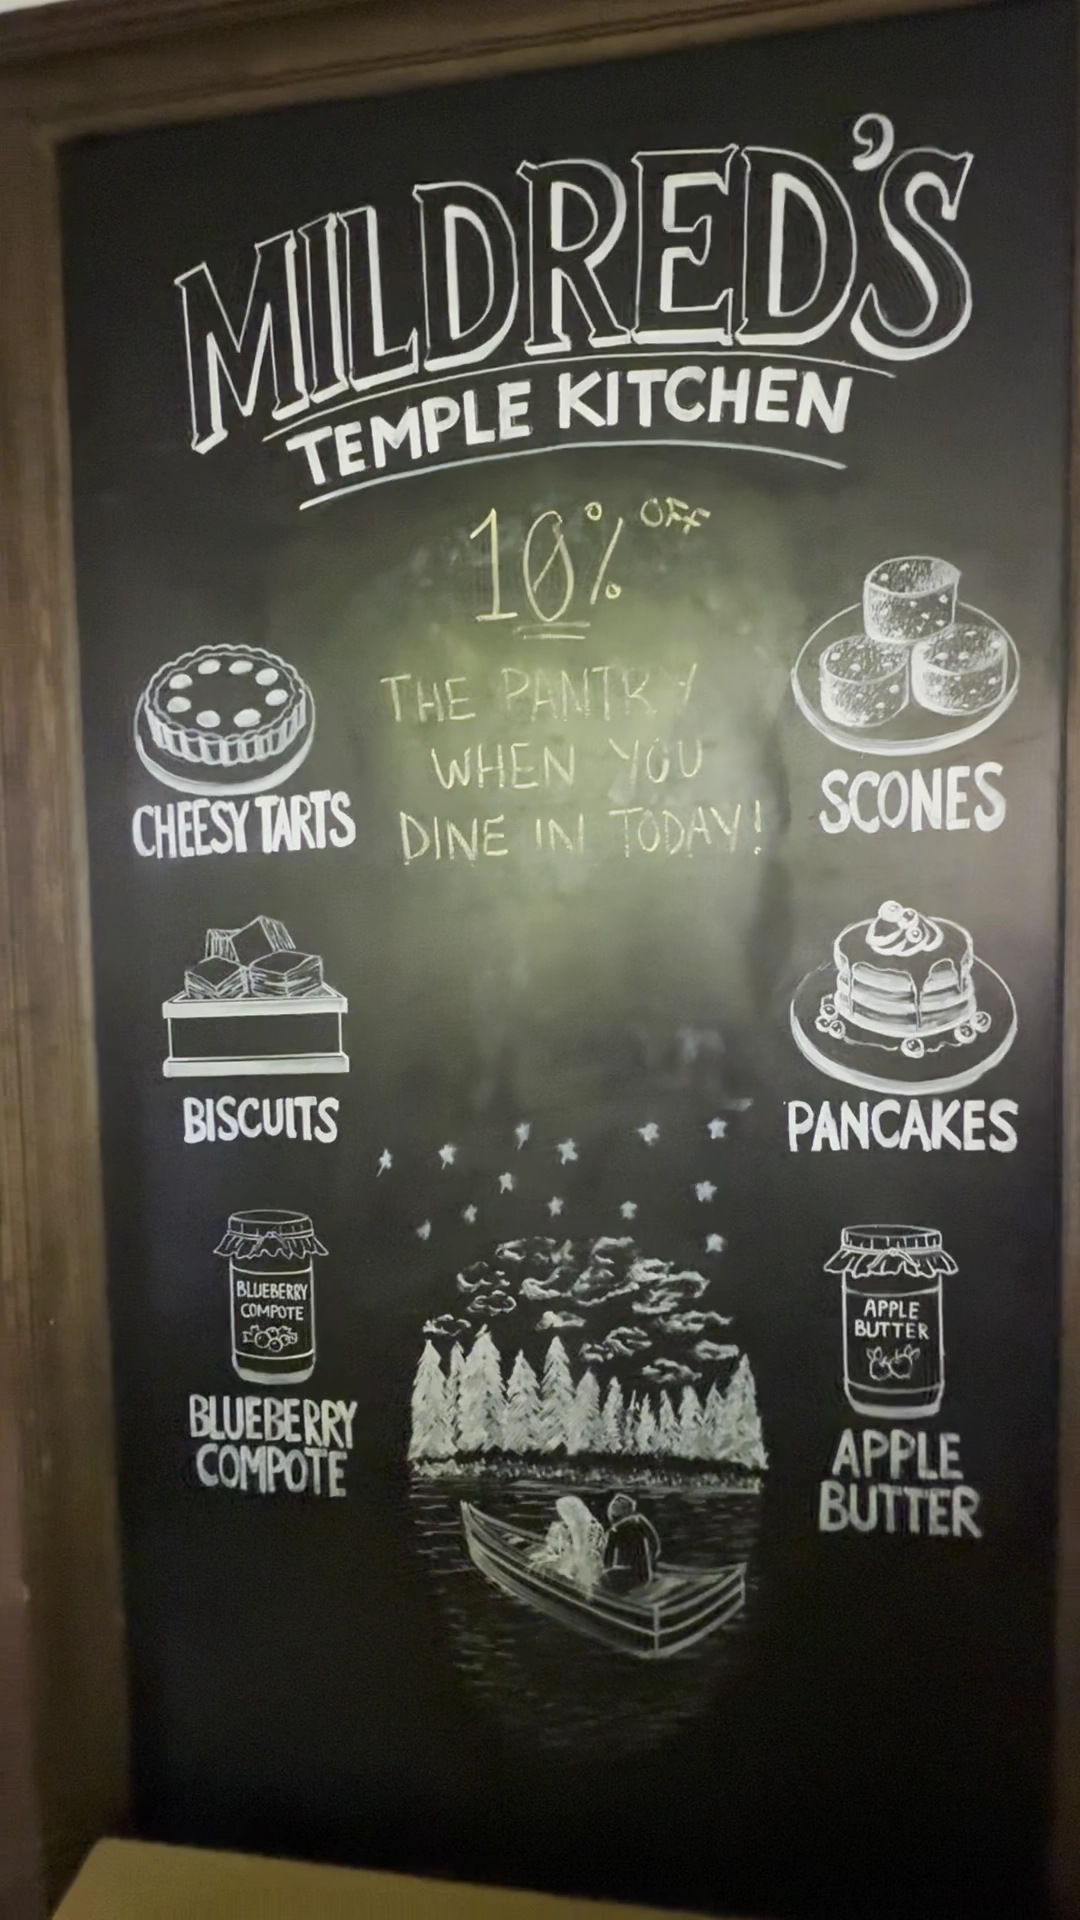 MILDRED'S
TEMPLE KITCHEN
10% OFF
THE PANTRY
WHEN YOU
DINE IN TODAY!
CHEESY TARTS
SCONES
BISCUITS
PANCAKES
BLUEBERRY
COMPOTE
BLUEBERRY
COMPOTE
APPLE
BUTTER
APPLE
BUTTER